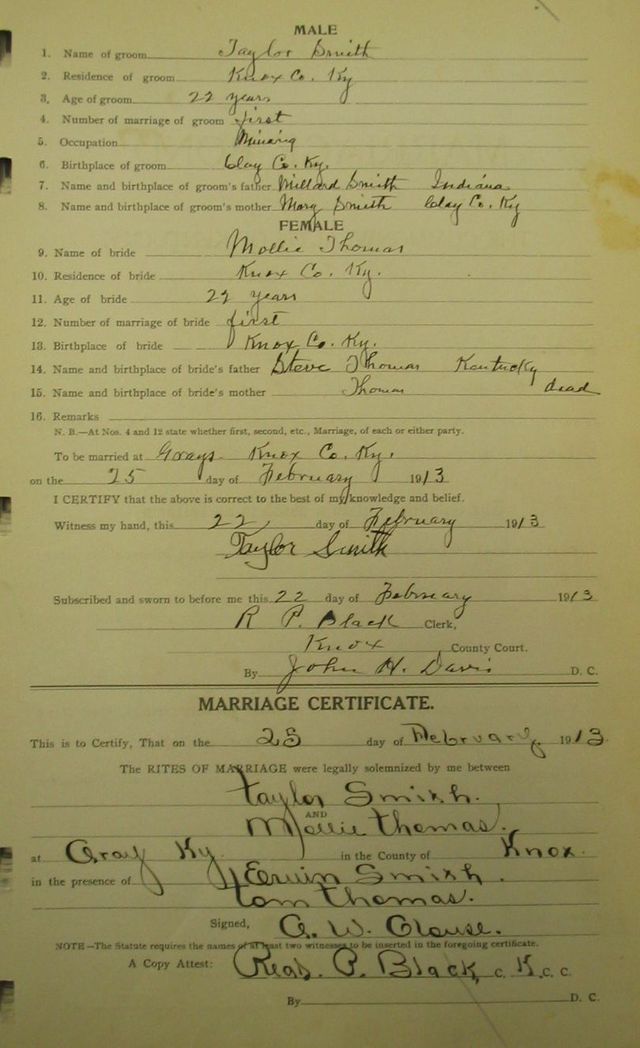 MALE
1. Name of groom Taylor Smith
2. Residence of groom Knox Co. Ky
3. Age of groom 22 years
4. Number of marriage of groom first
5. Occupation Mining
6. Birthplace of groom Clay Co. Ky.
7. Name and birthplace of groom's father Millard Smith Indiana
8. Name and birthplace of groom's mother Mary Smith Clay Co. Ky
FEMALE
9. Name of bride Mollie Thomas
10. Residence of bride Knox Co. Ky.
11. Age of bride 22 years
12. Number of marriage of bride first
13. Birthplace of bride Knox Co. Ky.
14. Name and birthplace of bride's father Steve Thomas Kentucky
15. Name and birthplace of bride's mother Thomas dead
16. Remarks
N. B.—At Nos. 4 and 12 state whether first, second, etc., Marriage, of each or either party.
To be married at Grays Knox Co. Ky.
on the 25 day of February 1913
I CERTIFY that the above is correct to the best of my knowledge and belief.
Witness my hand, this 22 day of February 1913
Taylor Smith
Subscribed and sworn to before me this 22 day of February 1913
R P. Black Clerk,
Knox County Court.
By John H. Davis D. C.
MARRIAGE CERTIFICATE.
This is to Certify, That on the 25 day of February 1913
The RITES OF MARRIAGE were legally solemnized by me between
taylor Smish.
AND
Mollie thomas.
at Gray Ky in the County of Knox.
in the presence of Ervin Smish.
tom thomas.
Signed, W.
NOTE—The Statute requires the names of at least two witnesses to be inserted in the foregoing certificate.
A Copy Attest: P. Black, C. K. C. C.
By D. C.